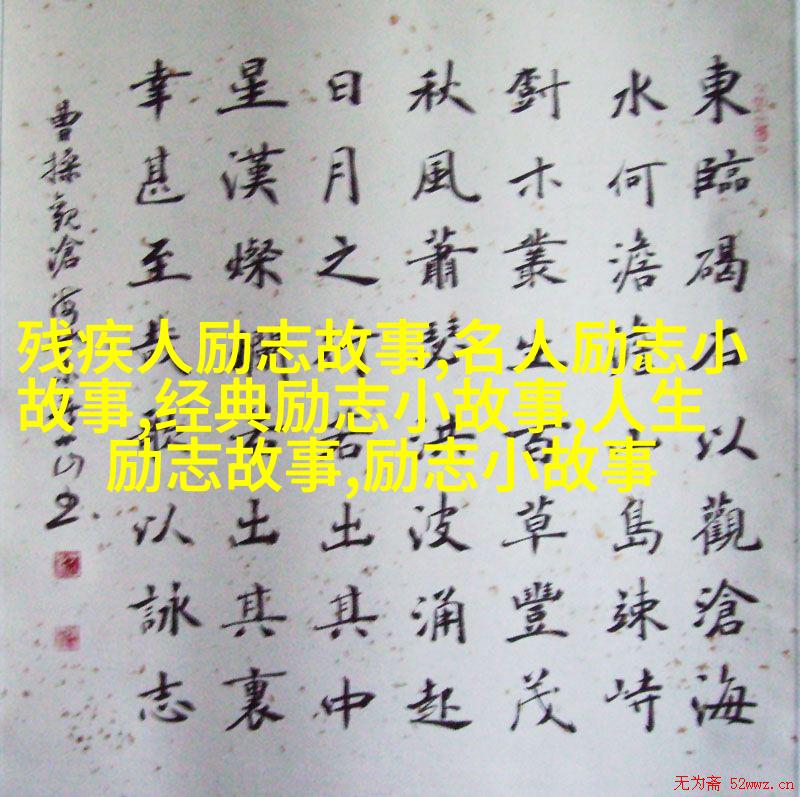 東臨碣石以觀滄海
水何澹澹山島竦峙
木叢生百草豐茂
秋風蕭瑟洪波涌起
日月之行若出其中
星漢燦爛若出其裏
幸甚至哉歌以詠志
曹操觀滄海
残疾人励志故事,名人励志小
故事,经典励志小故事,人生
励志故事,励志小故事
无为斋 52wwz.cn